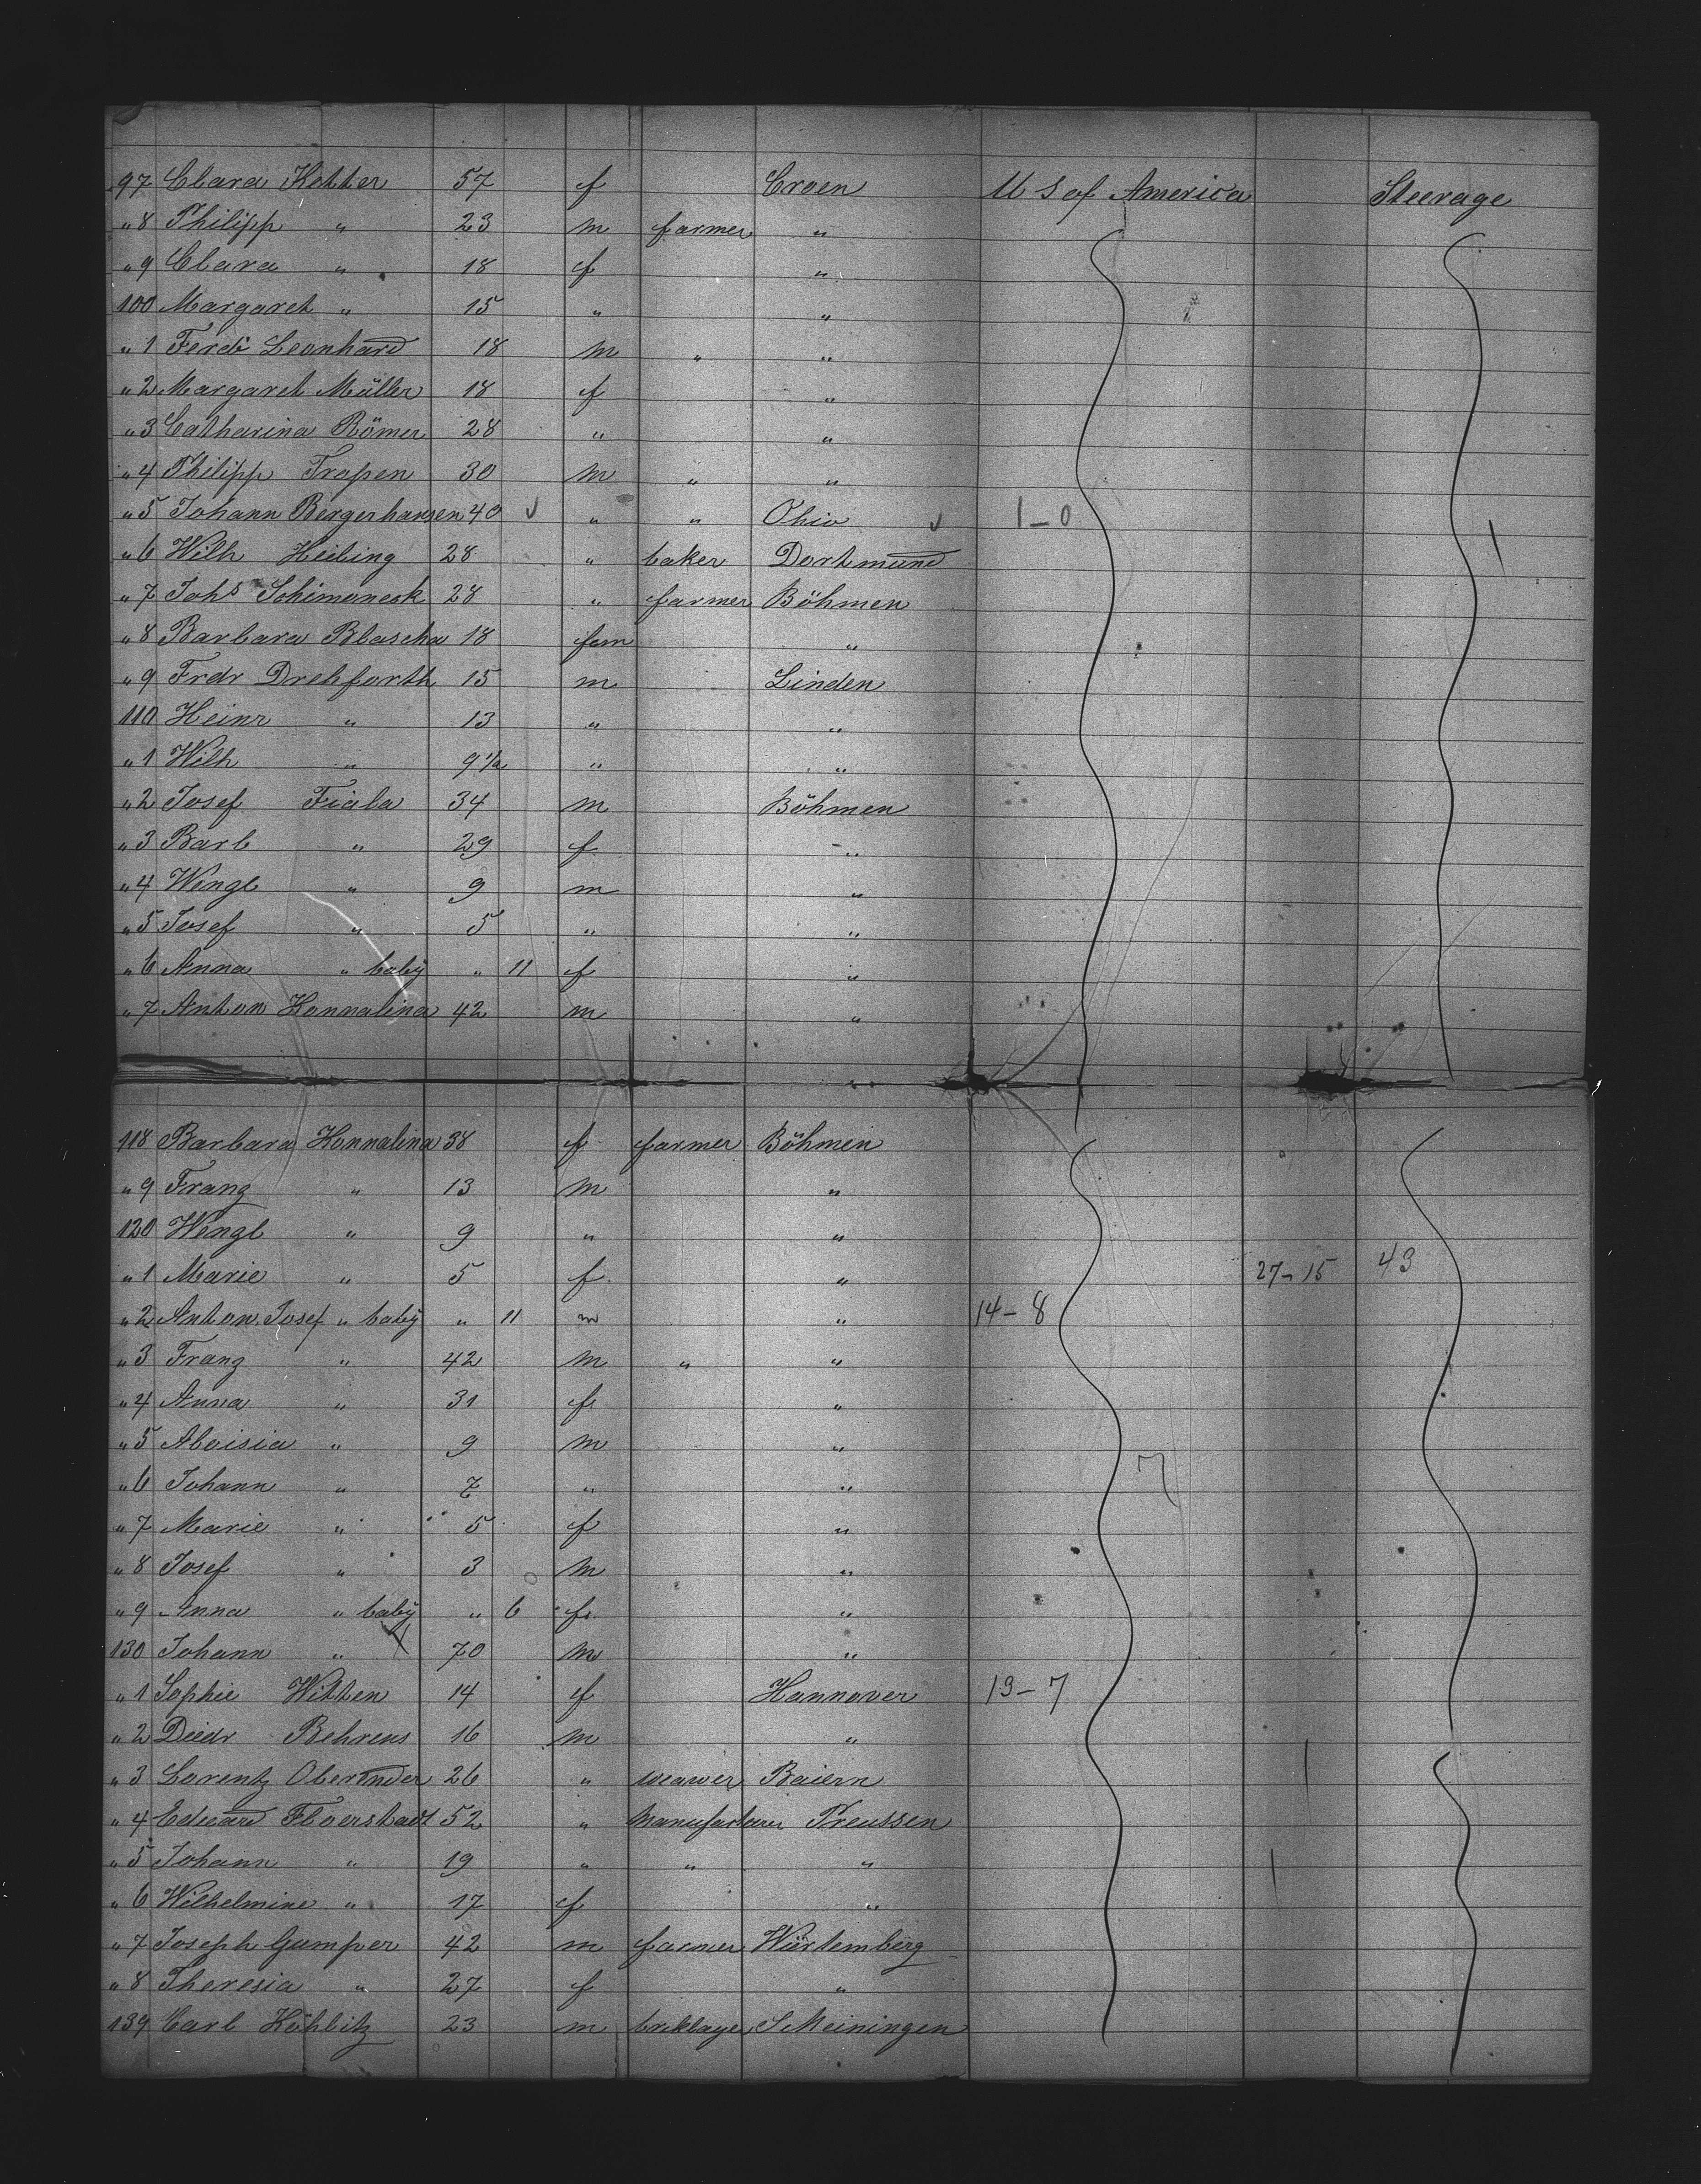 97 Clara Kotter 57 f Croen U S of America Steerage
"8 Philipp " 23 m farmer "
"9 Clara " 18 f "
100 Margaret " 15 " "
"1 Ferdi Leonhard 18 m " "
"2 Margaret Müller 18 f "
"3 Catharina Römer 28 " "
"4 Philipp Trapen 30 m " "
"5 Johann Bergerhausen 40 " " Ohio 1-0
"6 Wilh Heiling 28 " baker Dortmund
"7 Johs Schimaneck 28 " farmer Böhmen
"8 Barbara Blascha 18 fem "
"9 Frdr Drehforth 15 m Linden
110 Heinr " 13 " "
"1 Wilh " 9 1/2 " "
"2 Josef Fiala 34 m Böhmen
"3 Barb " 29 f "
"4 Wenzl " 9 m "
"5 Josef " 5 " "
"6 Anna " baby " 11 f "
"7 Anton Honnalina 42 m "
118 Barbara Honnalina 38 f farmer Böhmen
"9 Franz " 13 m "
120 Wenzl " 9 " "
"1 Marie " 5 f " 27-15 43
"2 Anton Josef " baby " 11 m " 14-8
"3 Franz " 42 m " "
"4 Anna " 31 f "
"5 Aloisia " 9 m "
"6 Johann " 7 " " 7
"7 Marie " 5 f "
"8 Josef " 3 m "
"9 Anna " baby " 6 f "
130 Johann " 70 m "
"1 Sophie Witten 14 f Hannover 13-7
"2 Diedr Behrens 16 m "
"3 Lorentz Oberender 26 " weawer Baiern
"4 Eduard Floerstadt 52 " manufacturer Preussen
"5 Johann " 19 " " "
"6 Wilhelmine " 17 f "
"7 Joseph Gumper 42 m farmer Würtemberg
"8 Theresia " 27 f "
139 Carl Köhlitz 23 m briklayer S Meiningen